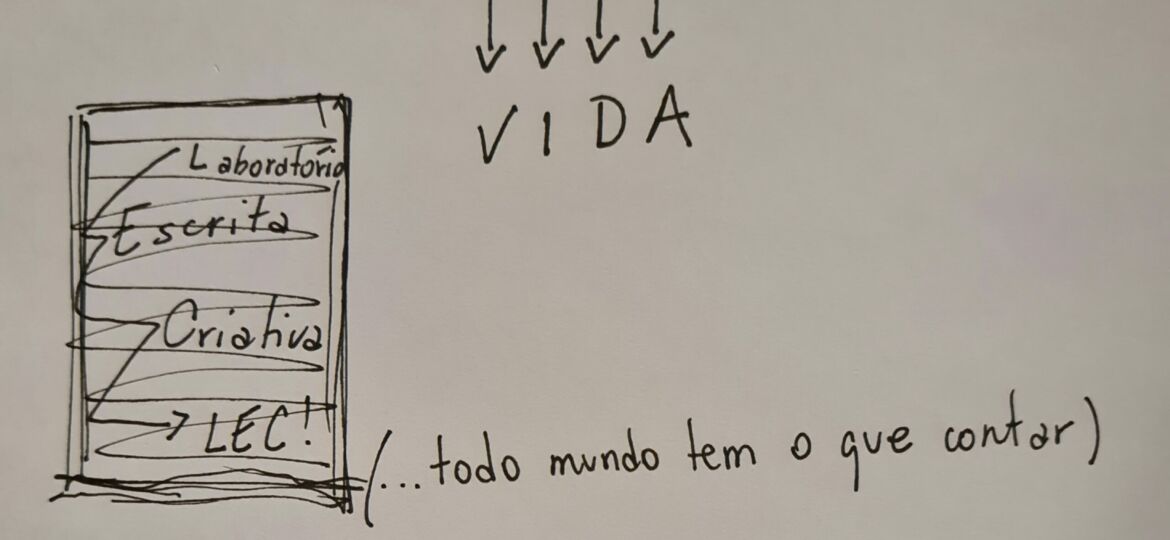 VIDA
Laboratório
Escrita
Criativa
LEC!
(...todo mundo tem o que contar)